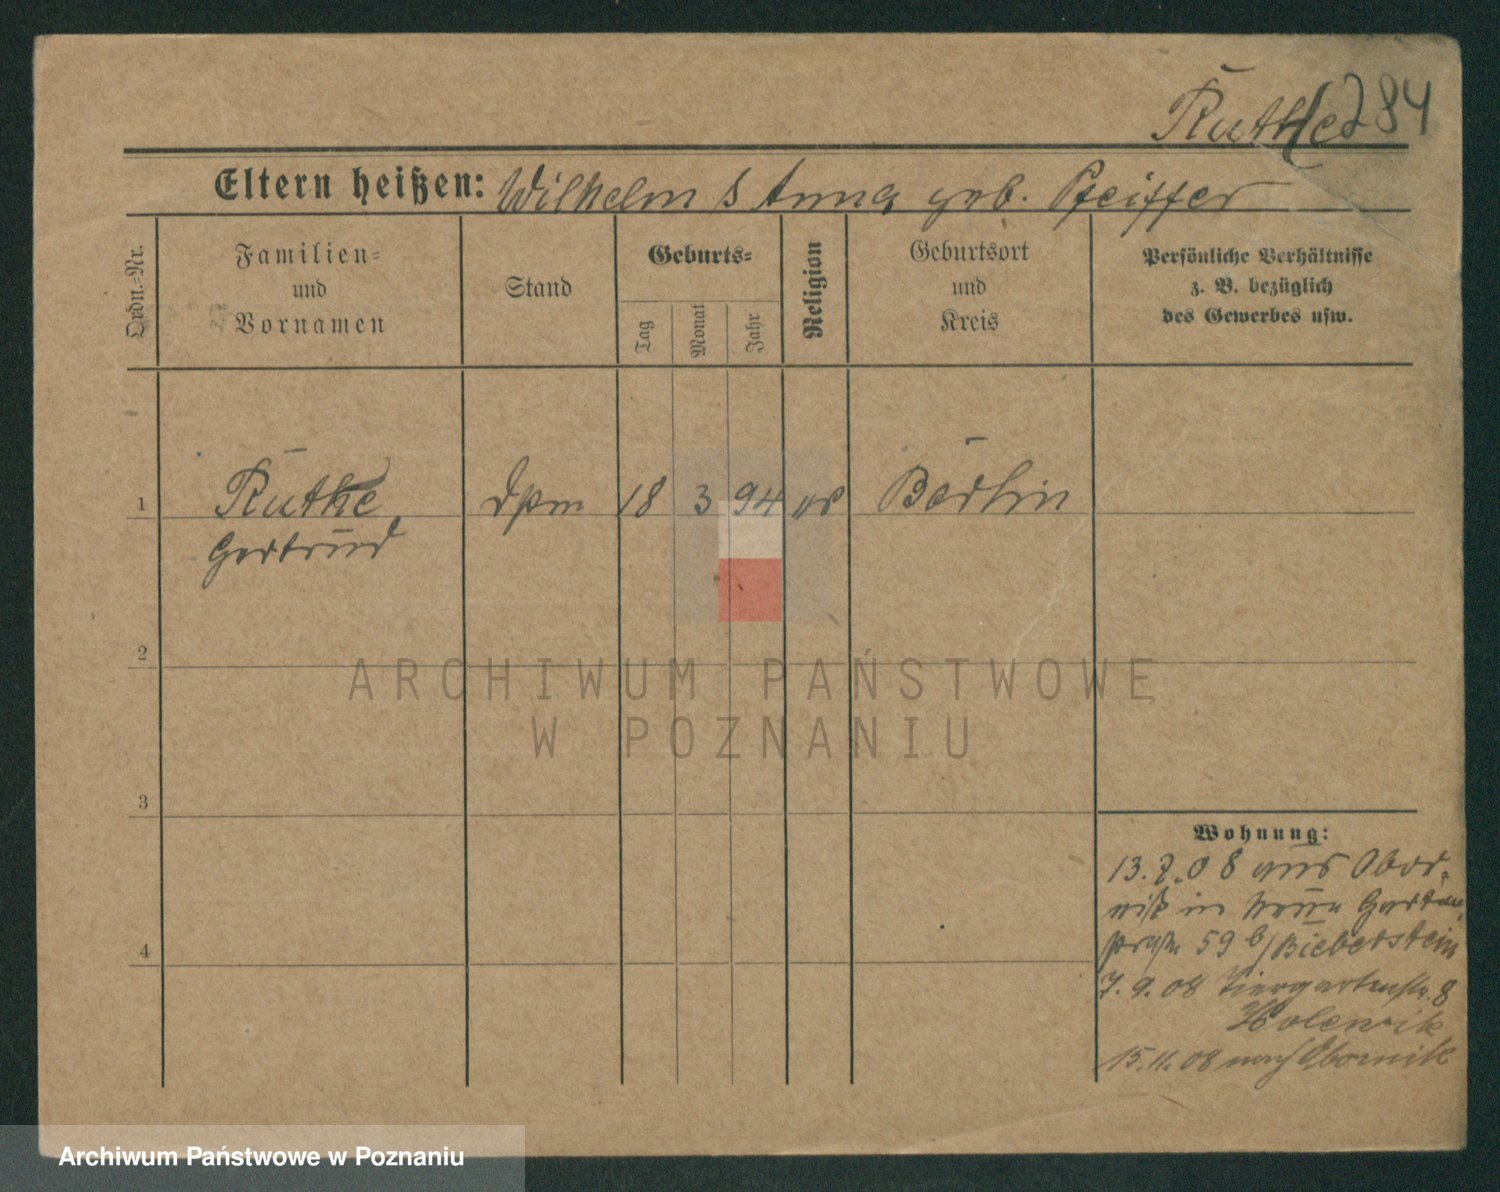 Ruthe 284
Eltern heißen: Wilhelm & Anna geb. Pfeiffer
Ordn.-Nr.
Familien-
und
Vornamen
Stand
Geburts-
Tag
Monat
Jahr
Religion
Geburtsort
und
Kreis
Persönliche Verhältnisse
z. B. bezüglich
des Gewerbes usw.
1 Ruthe 18 3 94 Berlin
Gertrud
2
3
4
Wohnung:
13.7.08 aus Obor-
nik in Garten
straße 59 b/Bieberstein
7.9.08 Tiergartenstr. 8
15.11.08 nach Obornik
ARCHIWUM PAŃSTWOWE
W POZNANIU
Archiwum Państwowe w Poznaniu